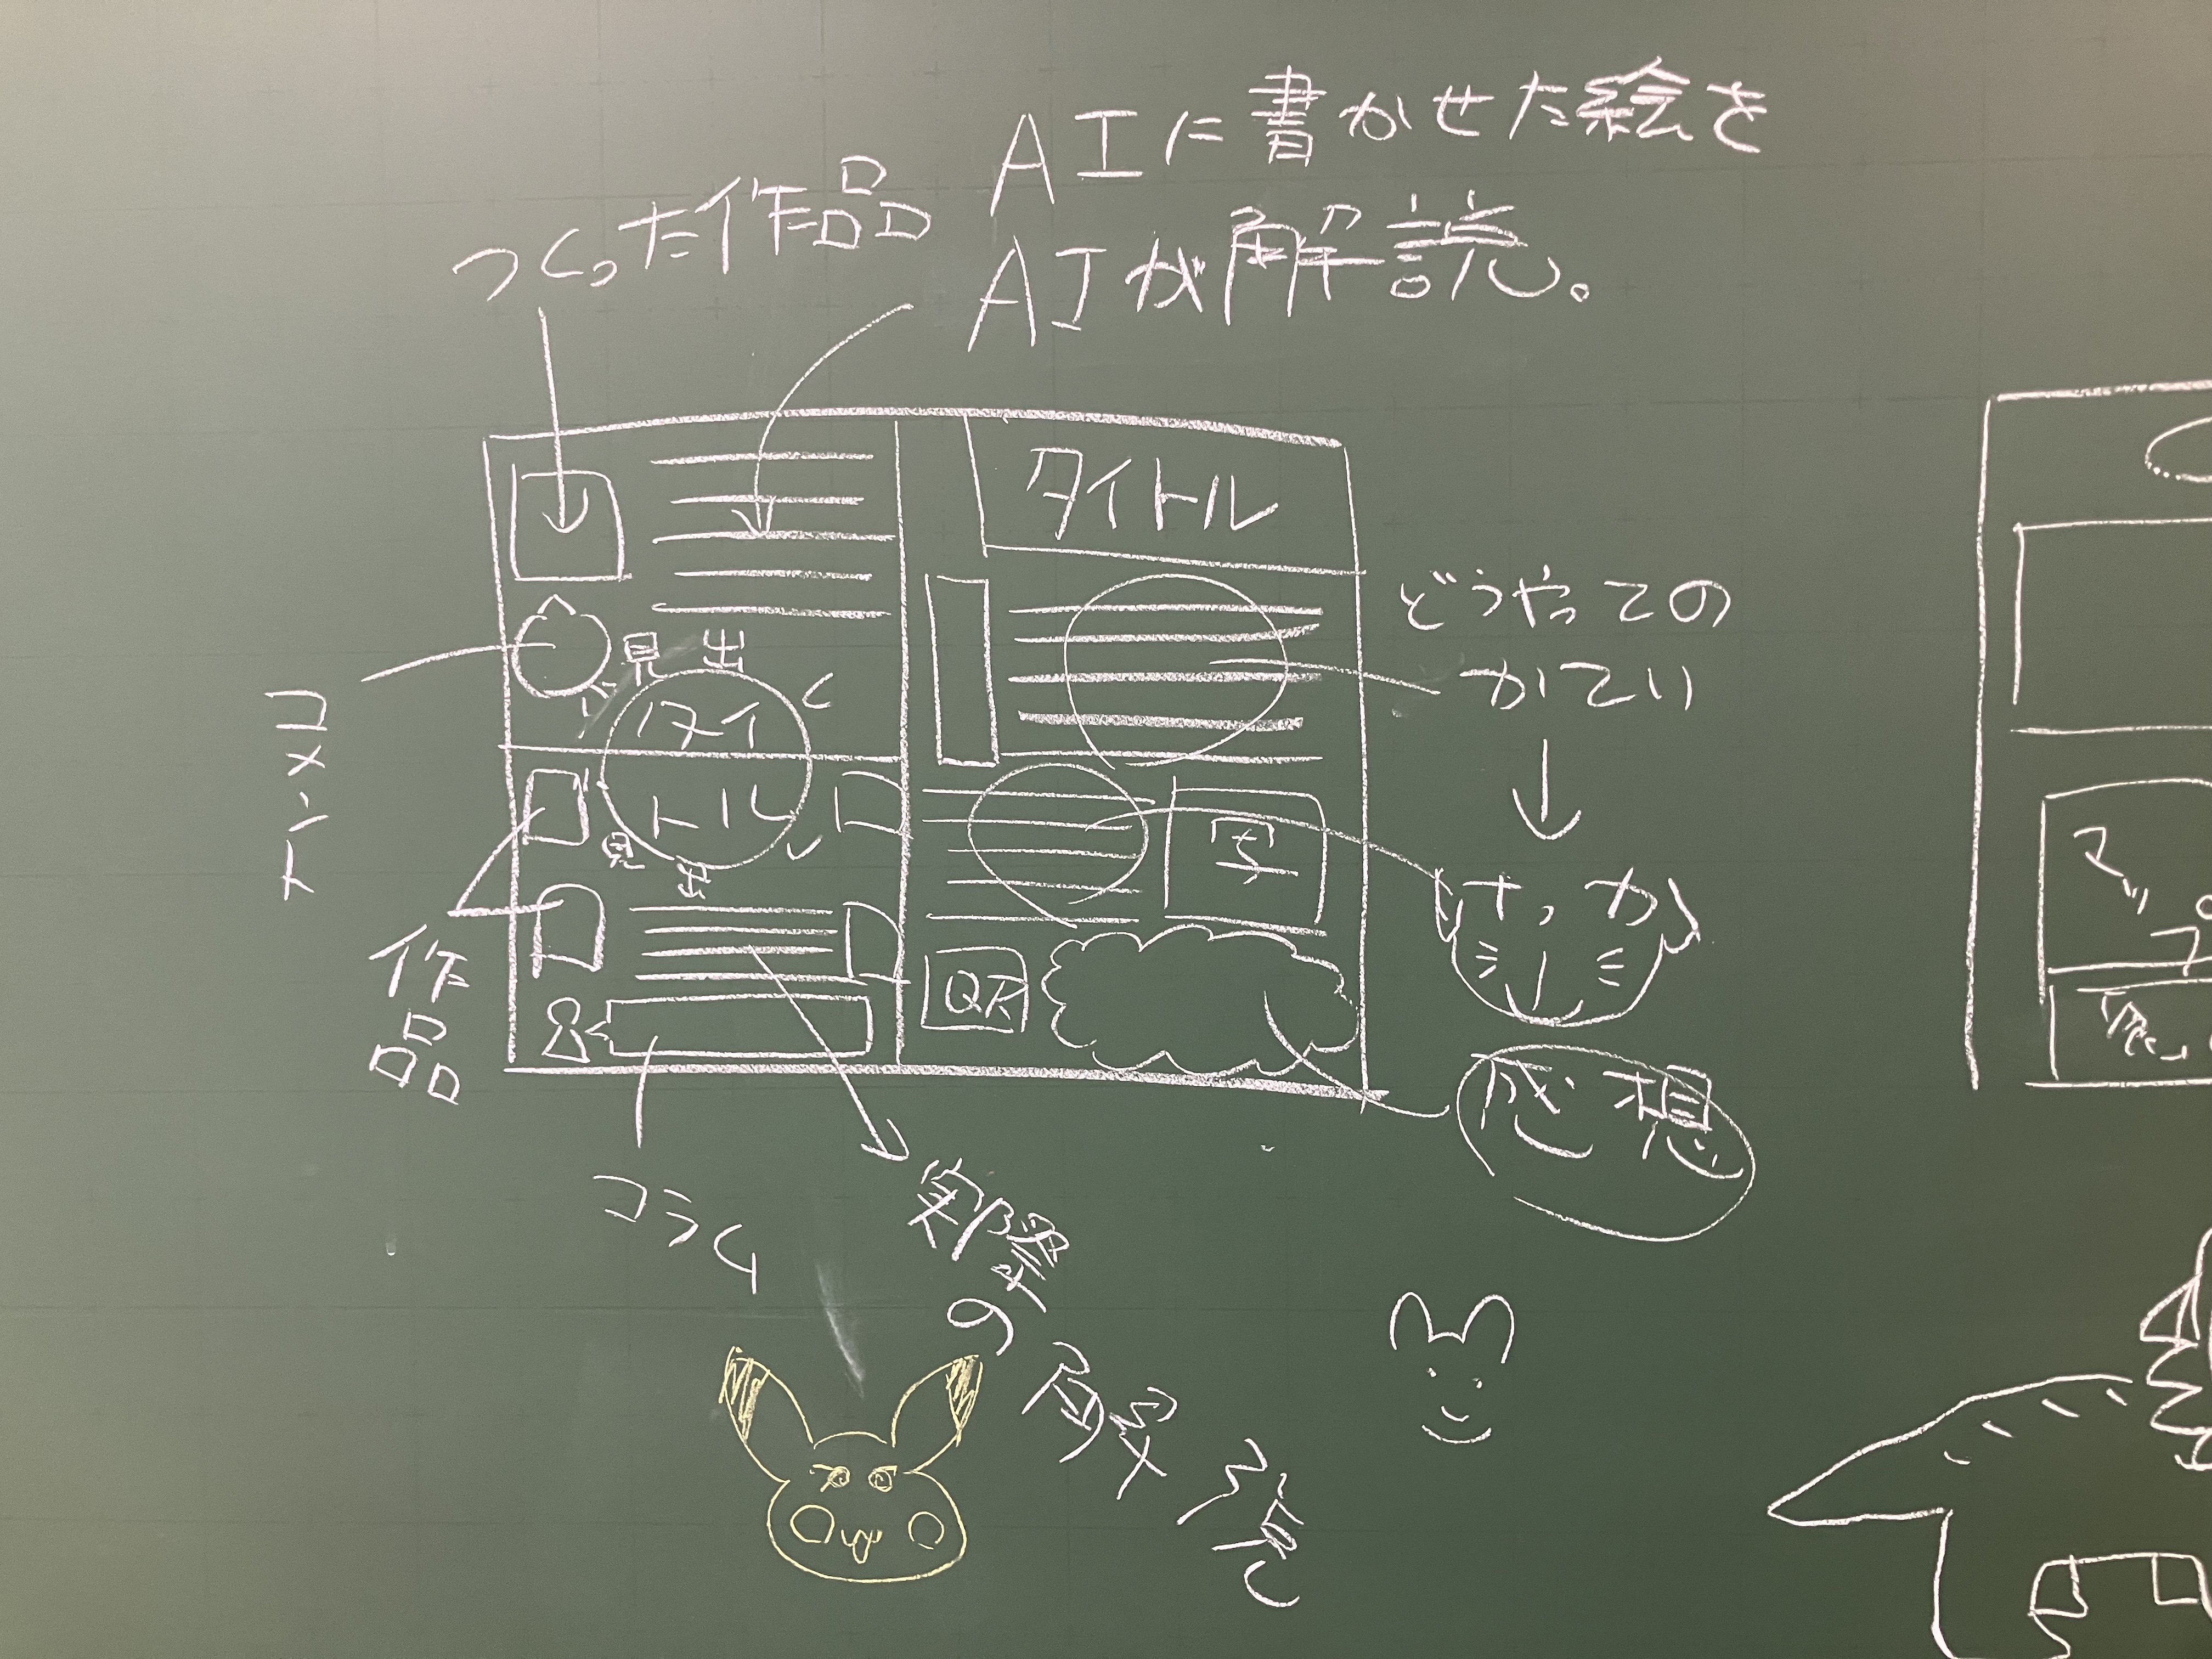 AIに書かせた絵を
AIが解読。
つくった作品
タイトル
どうやっての
かてい
見出し
タイ
トル
コメント
見出し
写
けっか
QR
作品
感想
コラム
実際の解
マップ